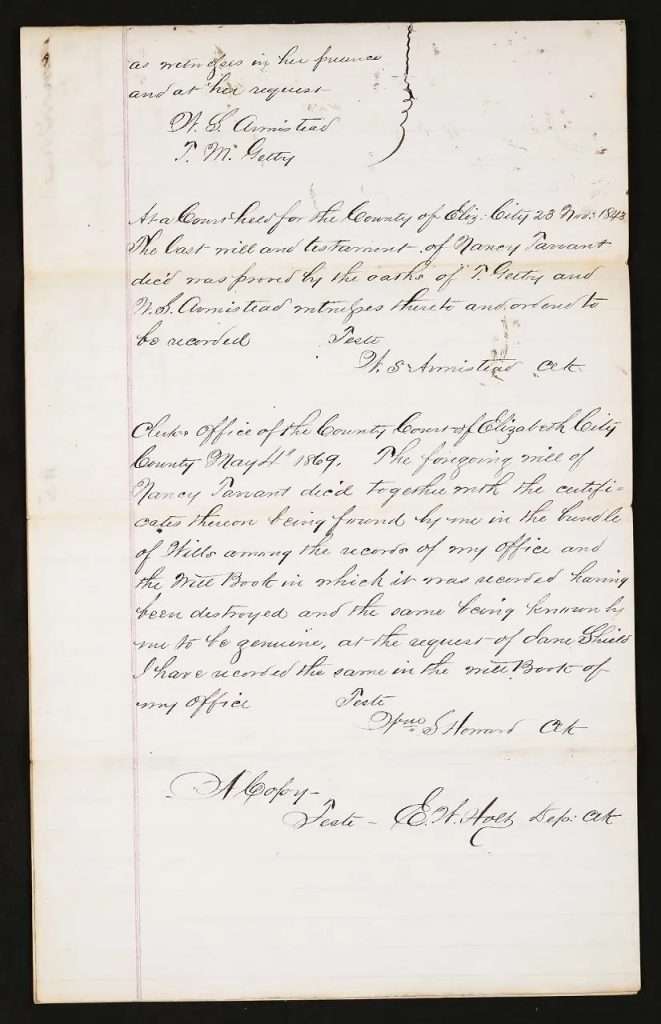 as witnesses in her presence
and at her request
W. S. Armistead
T. M. Getty
At a Court held for the County of Eliz: City 23 Nov: 1843
The last will and testament of Nancy Tarrant
dec'd was proved by the oaths of T. Getty and
W. S. Armistead witnesses thereto and ordered to
be recorded Teste
W. S Armistead Clk
Clerks Office of the County Court of Elizabeth City
County May 4th 1869. The foregoing will of
Nancy Tarrant dec'd together with the certifi-
cates thereon being found by me in the bundle
of Wills among the records of my office and
the Will Book in which it was recorded having
been destroyed and the same being known by
me to be genuine, at the request of Jane Shields
I have recorded the same in the will Book of
my office Teste
S Howard Clk
A Copy-
Teste - E. W. Holt Dep: Clk